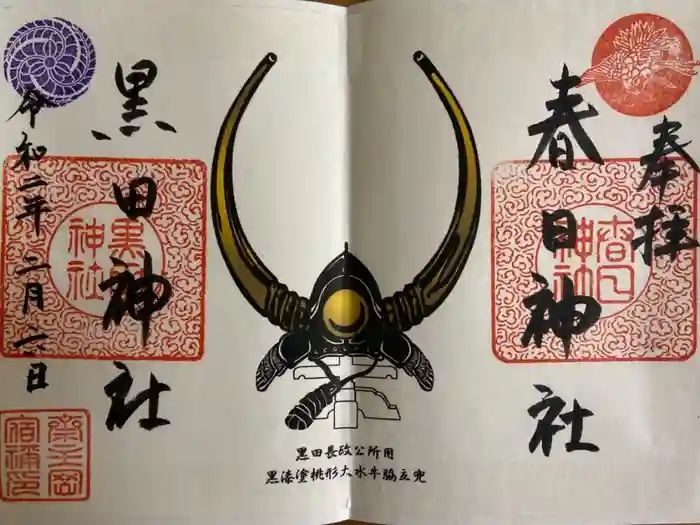 奉拝
春日神社
春日神社
黒田長政公所用
黒漆塗桃形大水牛脇立兜
黒田神社
黒田神社
令和二年二月六日